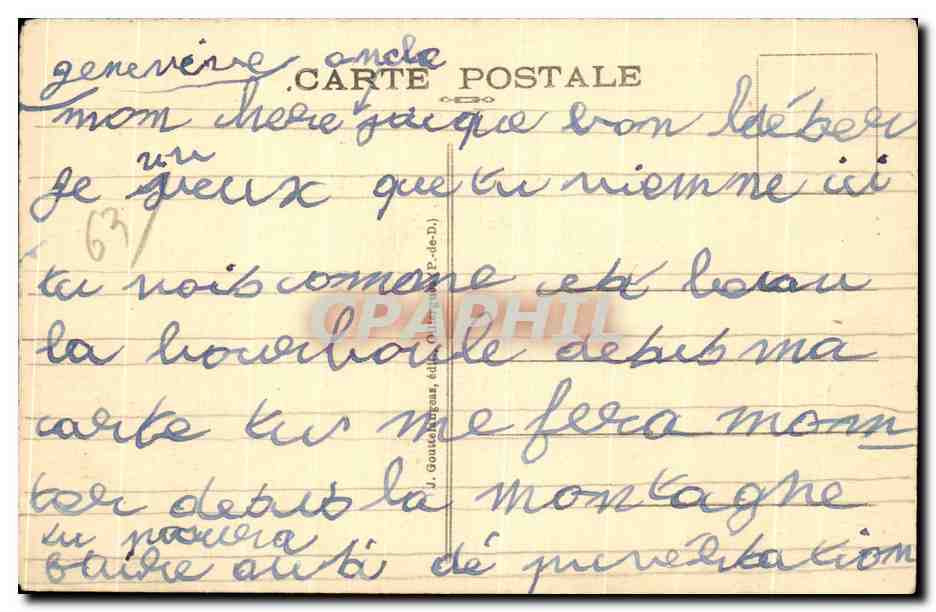 geneviève oncle
CARTE POSTALE
mom chere jaique bon ldéber
un
Je veux que tu niemne ici
63
tu vois comome est beau
la bourboule desus ma
carte tu me fera momm
ter desus la montaghe
tu poura
faire ausi dé
J. Gouttefangeas, édit., (P.-de-D.)
CPAPHIL